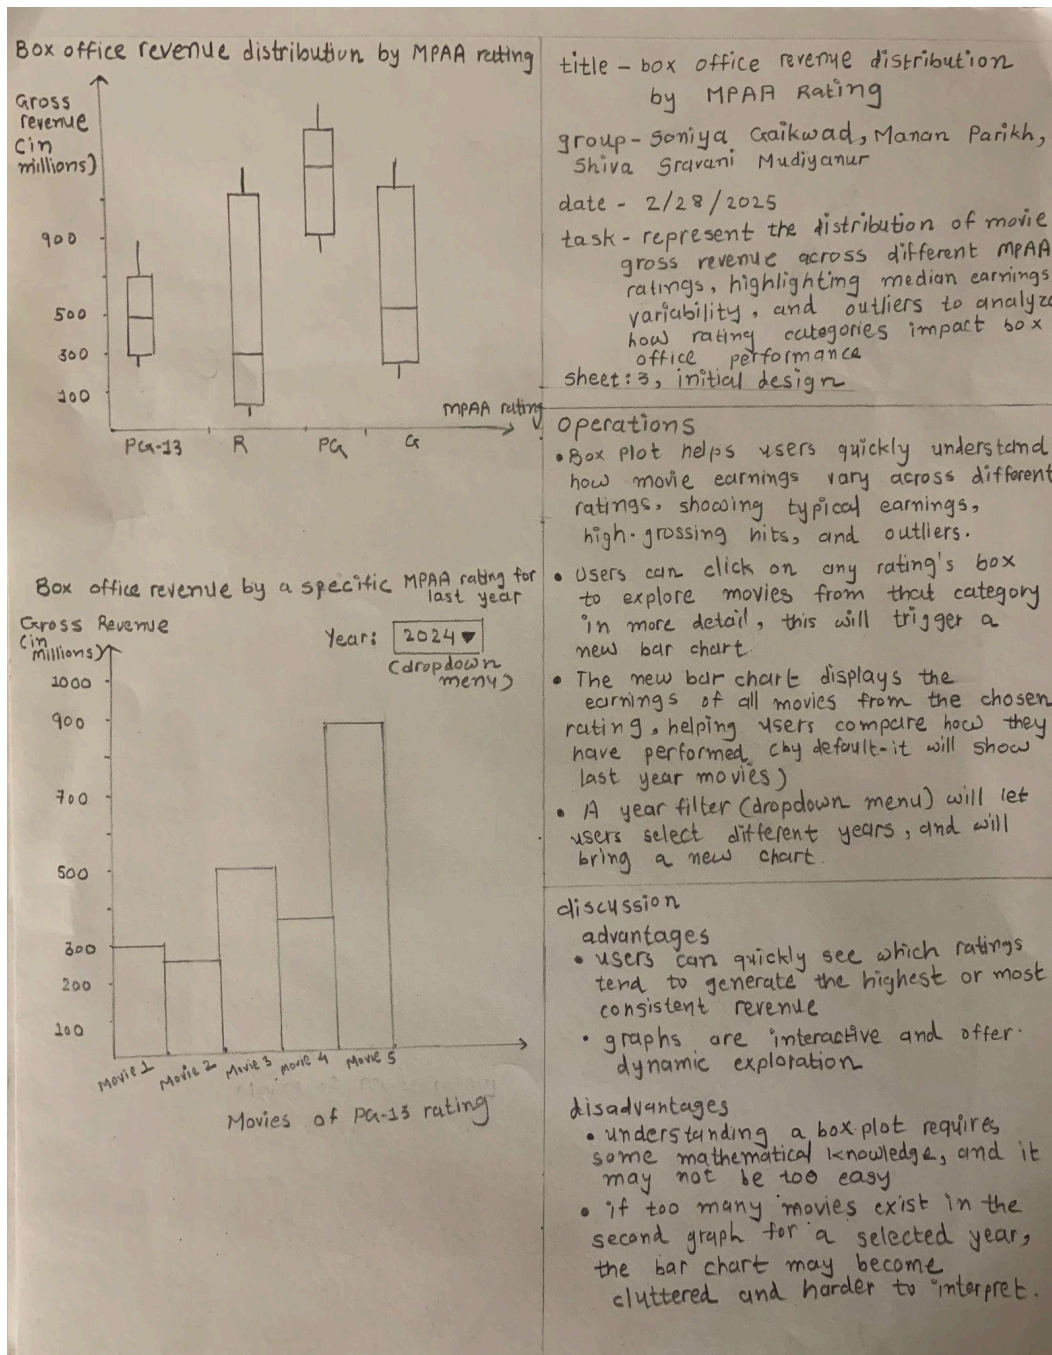 Box office revenue distribution by MPAA rating
Gross
revenue
(in
millions)
900
500
300
100
MPAA rating
PG-13 R PG G
Box office revenue by a specific MPAA rating for
last year
Gross Revenue
(in
millions)
Year: 2024
(dropdown
menu)
1000
900
700
500
300
200
100
Movie 1 Movie 2 Movie 3 Movie 4 Movie 5
Movies of PG-13 rating
title - box office revenue distribution
by MPAA Rating
group - Soniya Gaikwad, Manan Parikh,
Shiva Sravani Mudiyanur
date - 2/28/2025
task - represent the distribution of movie
gross revenue across different MPAA
ratings, highlighting median earnings
variability, and outliers to analyze
how rating categories impact box
office performance
sheet: 3, initial design
operations
• Box Plot helps users quickly understand
how movie earnings vary across different
ratings, showing typical earnings,
high-grossing hits, and outliers.
• Users can click on any rating's box
to explore movies from that category
in more detail, this will trigger a
new bar chart.
• The new bar chart displays the
earnings of all movies from the chosen
rating, helping users compare how they
have performed (by default-it will show
last year movies)
• A year filter (dropdown menu) will let
users select different years, and will
bring a new chart.
discussion
advantages
• users can quickly see which ratings
tend to generate the highest or most
consistent revenue
• graphs are interactive and offer
dynamic exploration
disadvantages
• understanding a box-plot requires
some mathematical knowledge, and it
may not be too easy
• if too many movies exist in the
second graph for a selected year,
the bar chart may become
cluttered and harder to interpret.